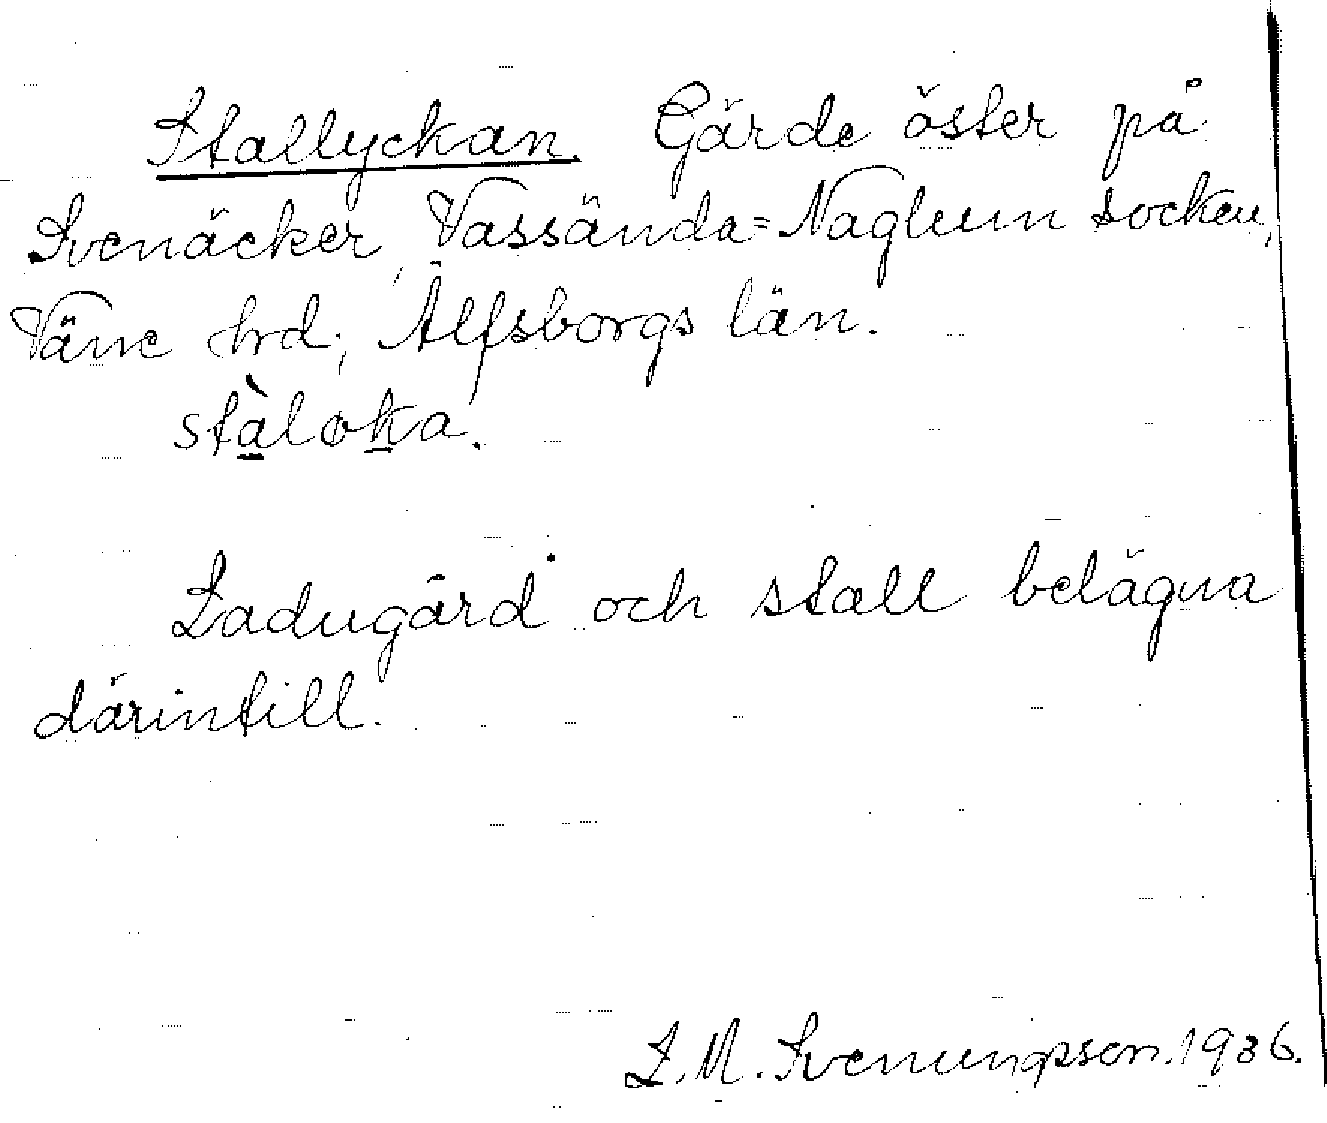 Stallyckan. Gärde öster på
Svenäcker, Vassända=Naglum socken,
Väne hrd; Älfsborgs län.
stàloka.
Ladugård och stall belägna
därintill.
L. M. Svenungsson. 1936.